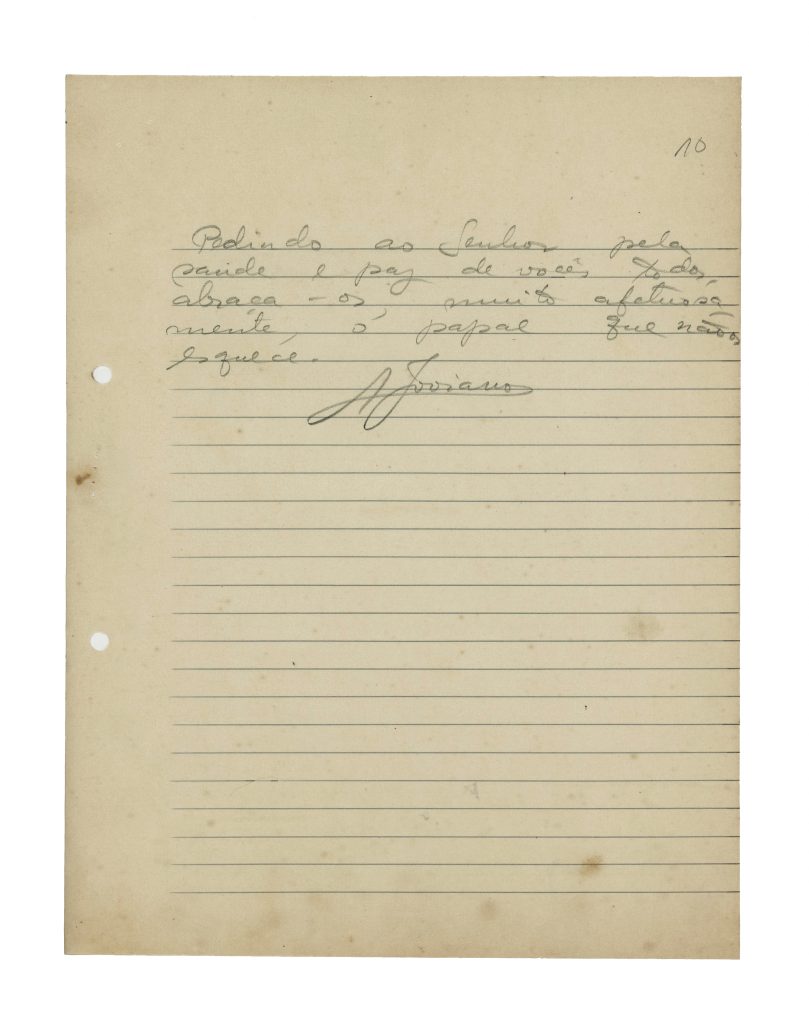 10
Pedindo ao Senhor pela
saúde e paz de vocês todos,
abraça-os, muito afetuosa
mente, o papai que não os
esquece.
A Joviano